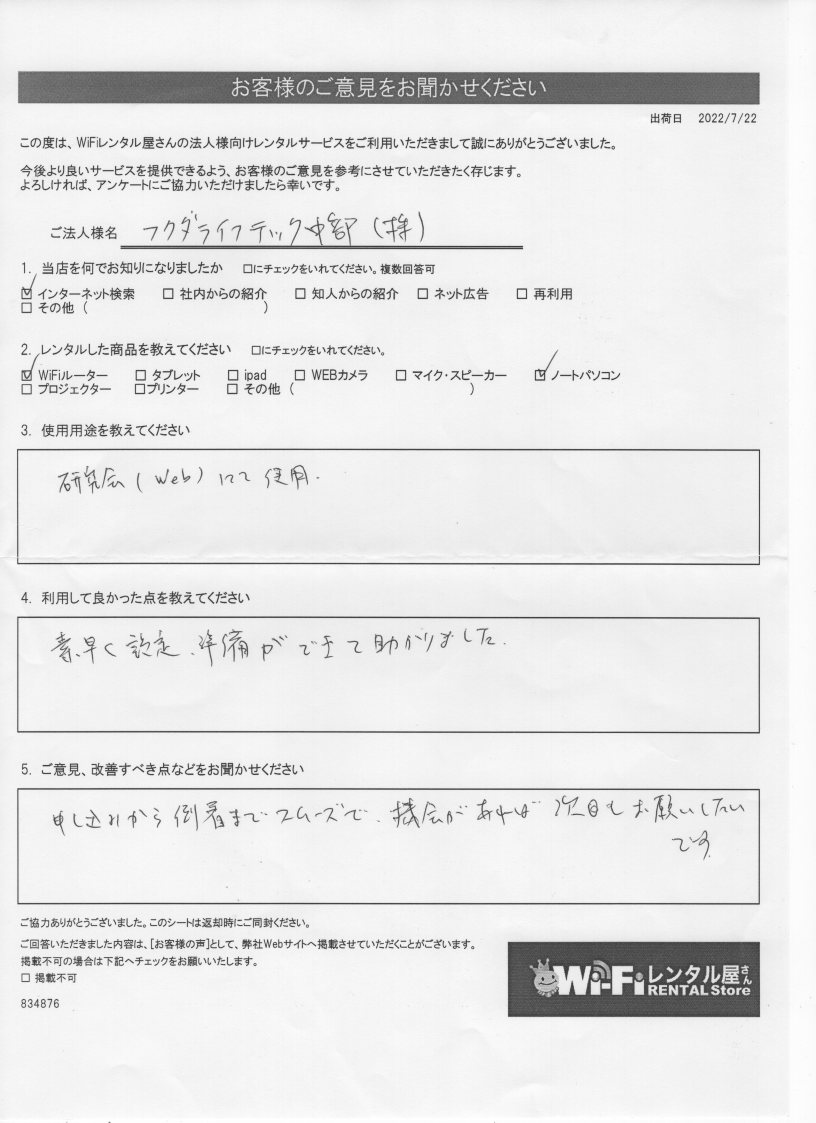 お客様のご意見をお聞かせください
出荷日 2022/7/22
この度は、WiFiレンタル屋さんの法人様向けレンタルサービスをご利用いただきまして誠にありがとうございました。
今後より良いサービスを提供できるよう、お客様のご意見を参考にさせていただきたく存じます。
よろしければ、アンケートにご協力いただけましたら幸いです。
ご法人様名 フクダライフテック中部(株)
1. 当店を何でお知りになりましたか □にチェックをいれてください。複数回答可
☑ インターネット検索 □ 社内からの紹介 □ 知人からの紹介 □ ネット広告 □ 再利用
□ その他 ( )
2. レンタルした商品を教えてください □にチェックをいれてください。
☑ WiFiルーター □ タブレット □ ipad □ WEBカメラ □ マイク・スピーカー ☑ ノートパソコン
□ プロジェクター □プリンター □ その他 ( )
3. 使用用途を教えてください
研究会(Web)にて使用.
4. 利用して良かった点を教えてください
素早く設定、準備ができて助かりました.
5. ご意見、改善すべき点などをお聞かせください
申し込みから倒着までスムーズで、機会があれば次回もお願いしたい
です
ご協力ありがとうございました。このシートは返却時にご同封ください。
ご回答いただきました内容は、[お客様の声]として、弊社Webサイトへ掲載させていただくことがございます。
掲載不可の場合は下記へチェックをお願いいたします。
□ 掲載不可
834876
Wi-Fiレンタル屋さん
RENTAL Store